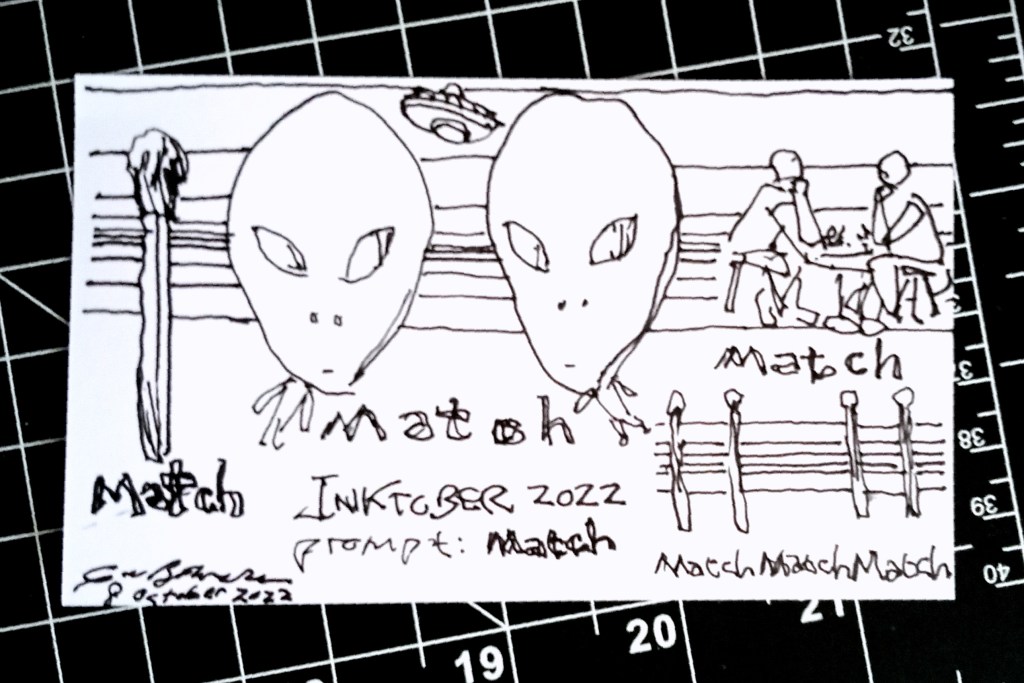 Match
Match
Match
INKTOBER 2022
prompt: Match
Match Match Match
8 October 2022
32
38
39
40
19
20
21